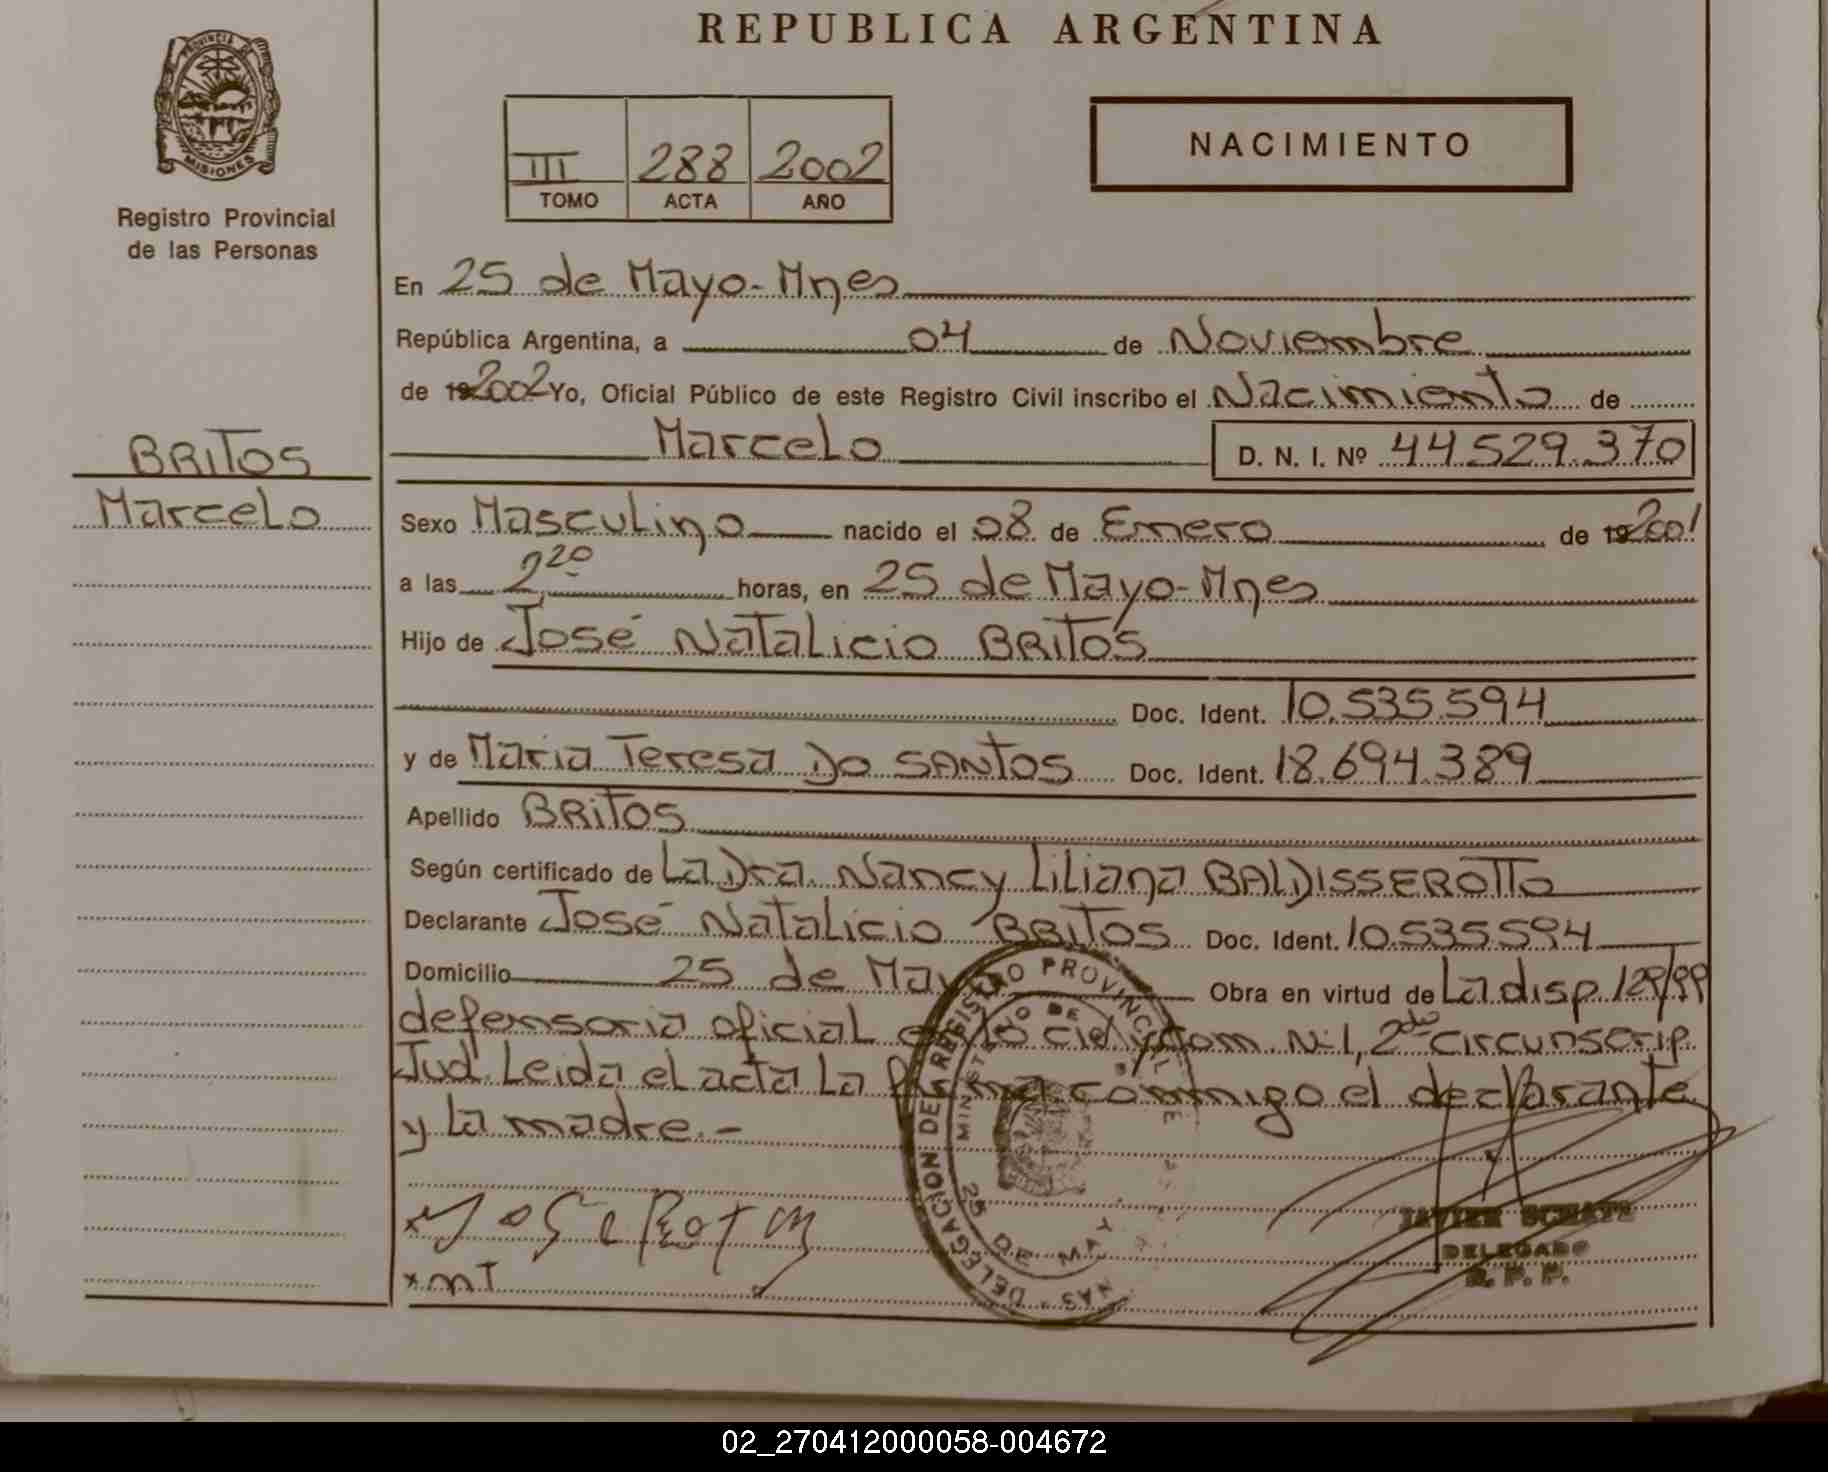 REPUBLICA ARGENTINA
PROVINCIA DE
MISIONES
Registro Provincial
de las Personas
III 288 2002
TOMO ACTA AÑO
NACIMIENTO
En 25 de Mayo-Mnes
República Argentina, a 04 de Noviembre
de 2002 Yo, Oficial Público de este Registro Civil inscribo el Nacimiento de
Marcelo D. N. I. Nº 44.529.370
BRITOS
Marcelo
Sexo Masculino nacido el 08 de Enero de 2001
a las 2 20 horas, en 25 de Mayo-Mnes
Hijo de José Natalicio BRITOS
Doc. Ident. 10.535.594
y de Maria Teresa Do SANTOS Doc. Ident. 18.694.389
Apellido BRITOS
Según certificado de La Dra. Nancy Liliana BALDISSEROTTO
Declarante José Natalicio BRITOS Doc. Ident. 10.535.594
Domicilio 25 de May Obra en virtud de La disp. 129/99
defensoria oficial en lo civ y com. N-1, 2do circunscrip.
Jud. Leida el acta La firma commigo el declarante
y La madre.-
REGISTRO PROVINCIAL DE
NAS - DELEGACION DEL
MINISTERIO DE
25 DE MAY
x José
x MT
JAVIER SCHATZ
DELEGADO
R. P. P.
02_270412000058-004672